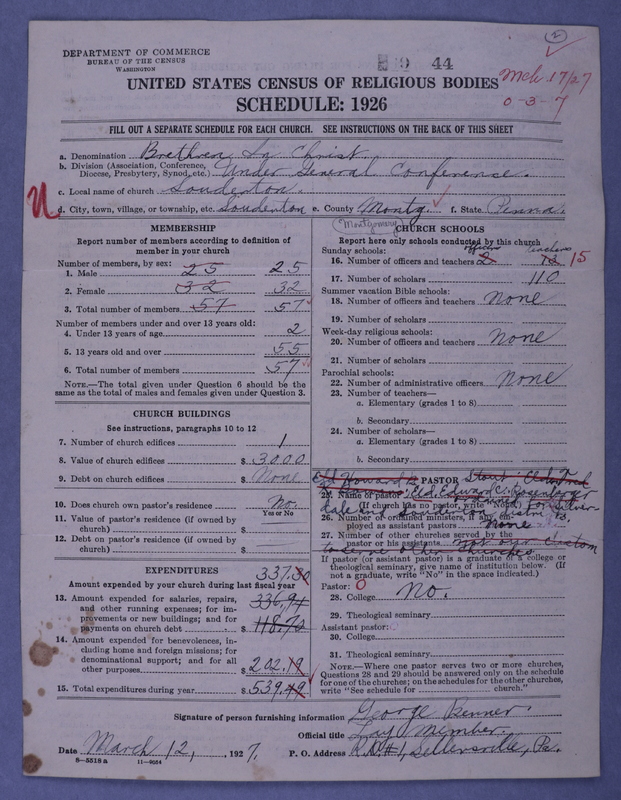 DEPARTMENT OF COMMERCE
BUREAU OF THE CENSUS
WASHINGTON
19 44
2
UNITED STATES CENSUS OF RELIGIOUS BODIES
Mch 17/27
SCHEDULE: 1926
0-3-7
FILL OUT A SEPARATE SCHEDULE FOR EACH CHURCH. SEE INSTRUCTIONS ON THE BACK OF THIS SHEET
a. Denomination Brethren In Christ
b. Division (Association, Conference, Diocese, Presbytery, Synod, etc.) Under General Conference.
c. Local name of church Souderton.
d. City, town, village, or township, etc. Souderton e. County Montg. f. State Penna.
(Montgomery)
MEMBERSHIP
Report number of members according to definition of
member in your church
Number of members, by sex:
1. Male 25 25
2. Female 32 32
3. Total number of members 57 57
Number of members under and over 13 years old:
4. Under 13 years of age 2
5. 13 years old and over 55
6. Total number of members 57
NOTE.—The total given under Question 6 should be the
same as the total of males and females given under Question 3.
CHURCH BUILDINGS
See instructions, paragraphs 10 to 12
7. Number of church edifices 1
8. Value of church edifices $ 3000
9. Debt on church edifices $ None
10. Does church own pastor's residence? No.
Yes or No
11. Value of pastor's residence (if owned by
church) $
12. Debt on pastor's residence (if owned by
church) $
EXPENDITURES
337.30
Amount expended by your church during last fiscal year
13. Amount expended for salaries, repairs, 336.94
and other running expenses; for im-
provements or new buildings; and for
payments on church debt $ 118.70
14. Amount expended for benevolences, in-
cluding home and foreign missions; for
denominational support; and for all
other purposes $ 202.19
15. Total expenditures during year $ 539.49
CHURCH SCHOOLS
Report here only schools conducted by this church
Sunday schools: officers teachers
16. Number of officers and teachers 2 13 15
17. Number of scholars 110
Summer vacation Bible schools:
18. Number of officers and teachers None
19. Number of scholars
Week-day religious schools:
20. Number of officers and teachers None
21. Number of scholars
Parochial schools:
22. Number of administrative officers None
23. Number of teachers—
a. Elementary (grades 1 to 8)
b. Secondary
24. Number of scholars—
a. Elementary (grades 1 to 8)
b. Secondary
PASTOR
25. Name of pastor Eld. Edward C. Rosenberger
(If church has no pastor, write "None") For Silver-
dale and Souderton district
26. Number of ordained ministers, if any, em-
ployed as assistant pastors None
27. Number of other churches served by the
pastor or his assistants not our custom
to serve other churches
If pastor (or assistant pastor) is a graduate of a college or
theological seminary, give name of institution below. (If
not a graduate, write "No" in the space indicated.)
Pastor: 0
28. College No.
29. Theological seminary
Assistant pastor:
30. College
31. Theological seminary
NOTE.—Where one pastor serves two or more churches,
Questions 28 and 29 should be answered only on the schedule
for one of the churches; on the schedules for the other churches,
write "See schedule for church."
Signature of person furnishing information George Renner.
Official title Lay Member.
Date March 12, 1927. P. O. Address R.D.#1, Sellersville, Pa.
8—5518 a 11—9054